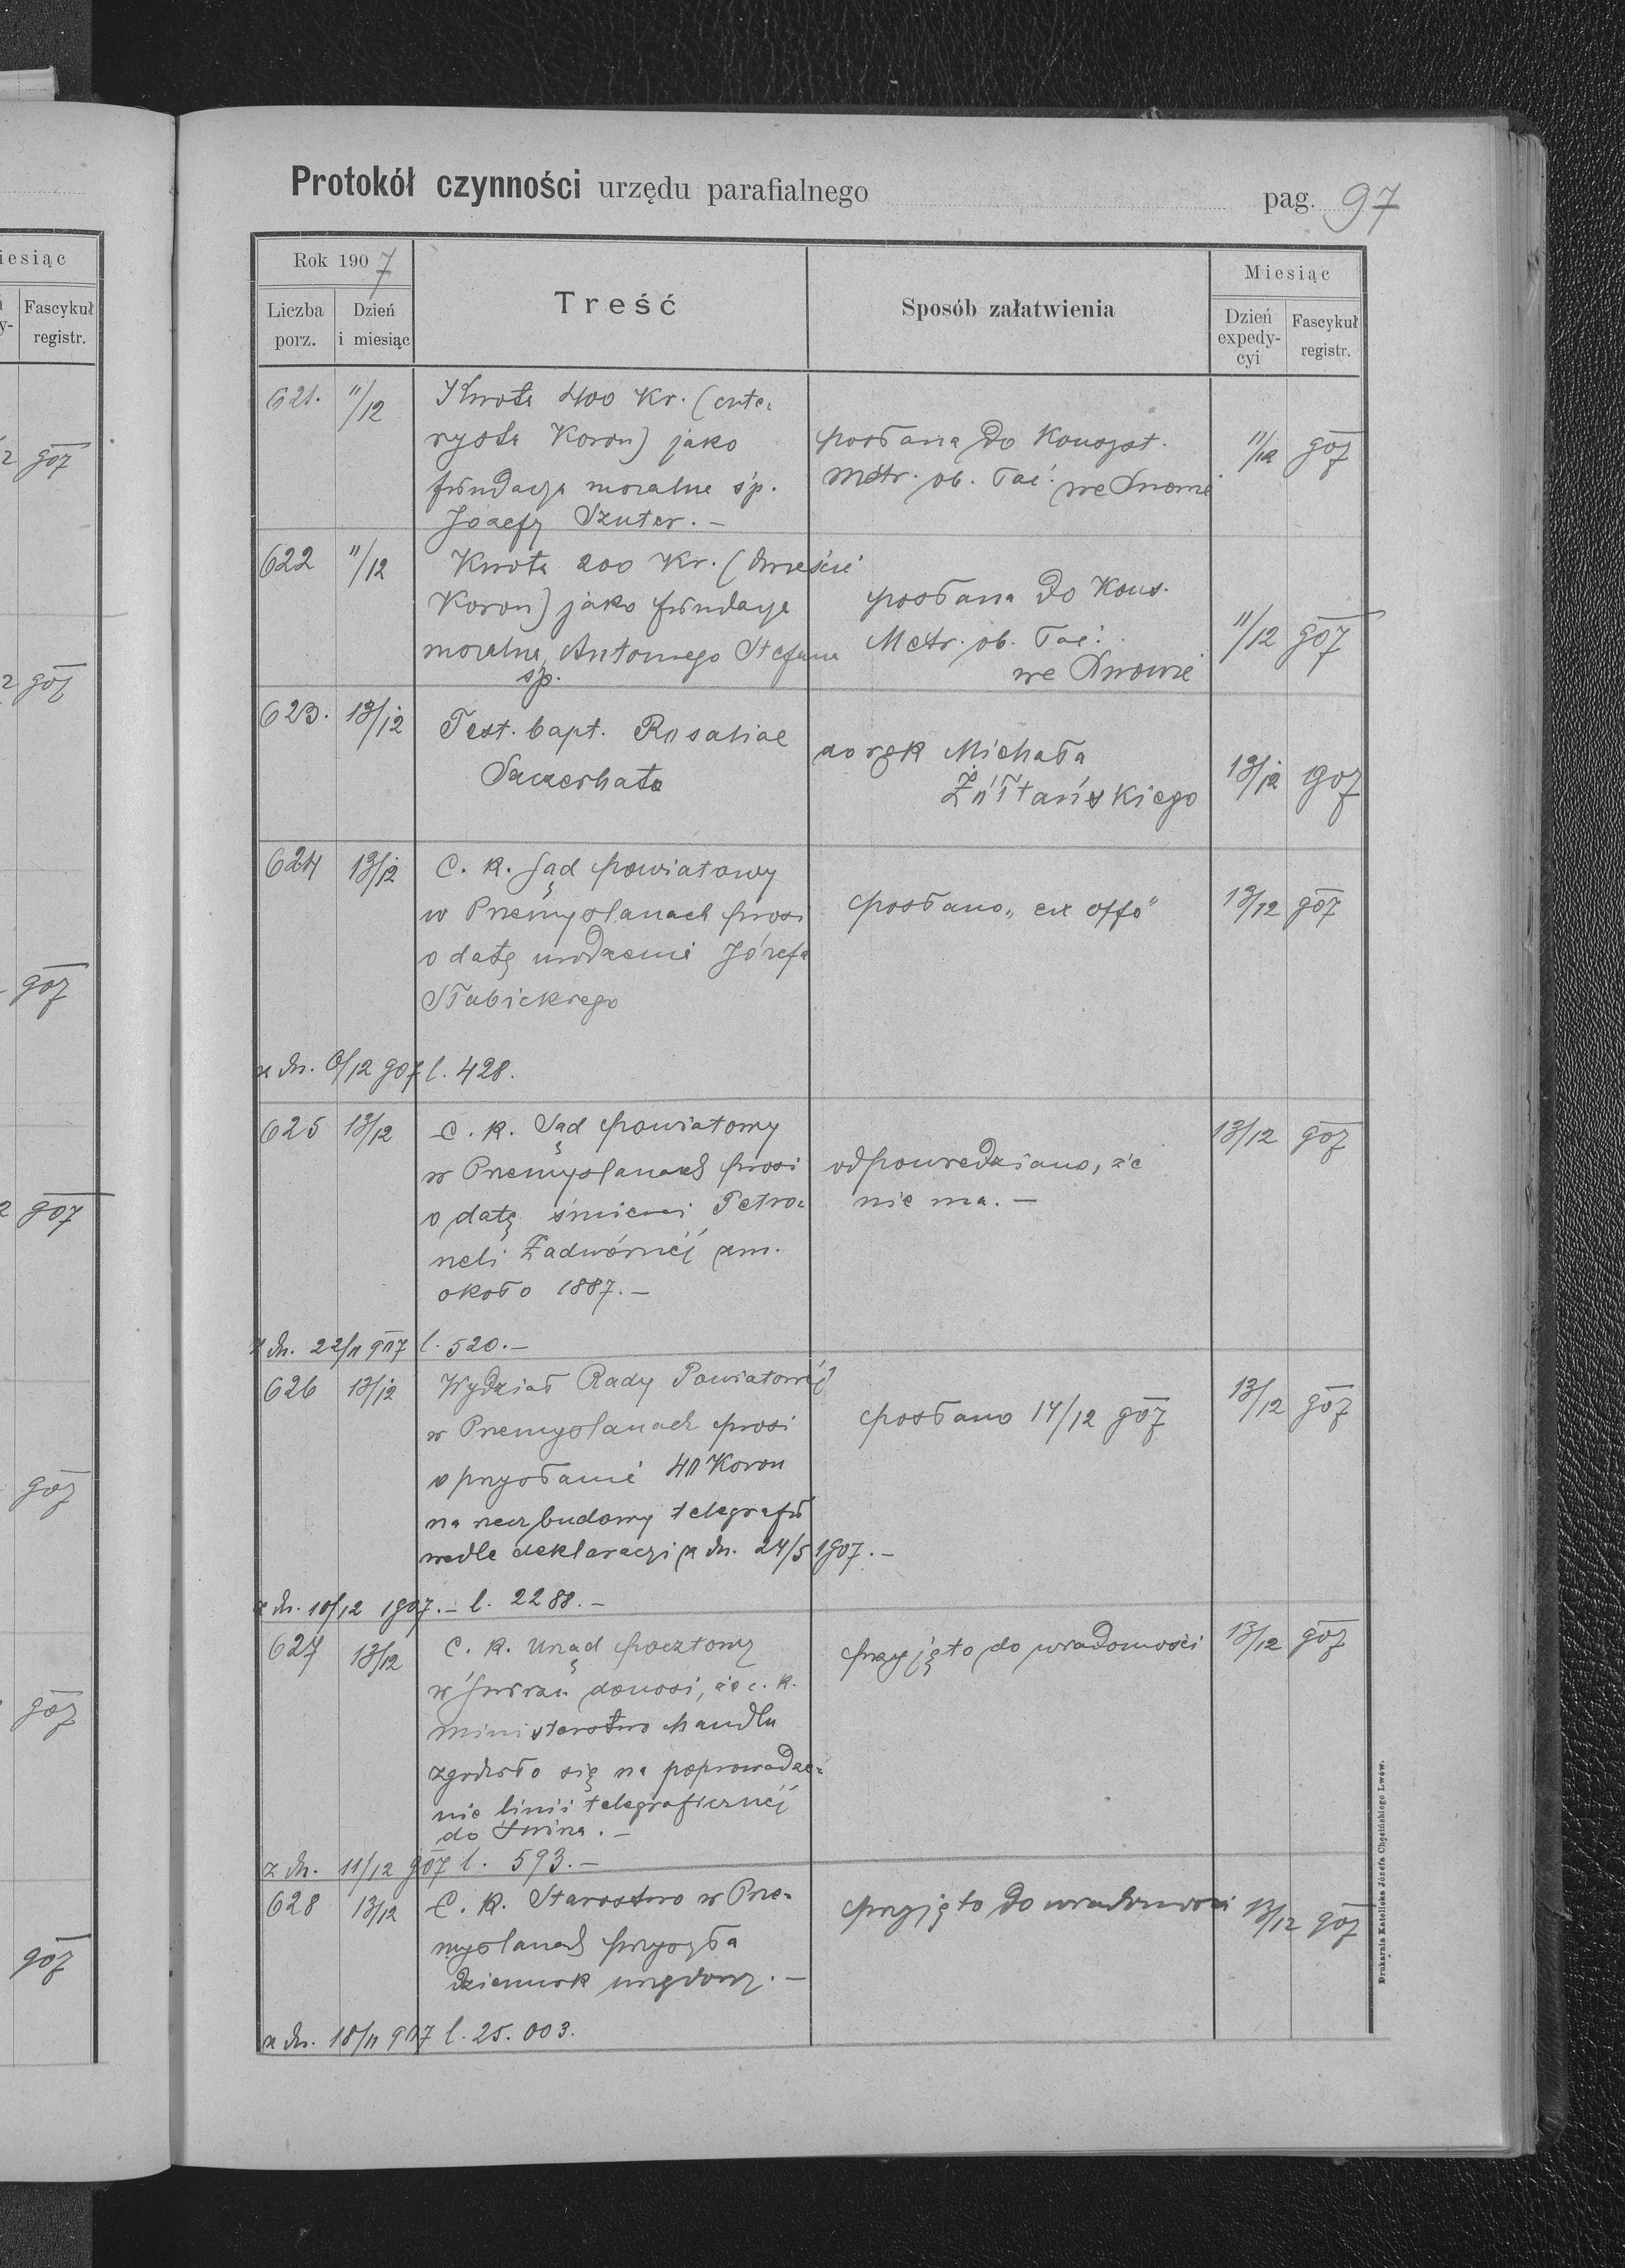 Protokół czynności urzędu parafialnego pag. 97
Rok 1907
Liczba porz.
Dzień i miesiąc
Treść
Sposób załatwienia
Miesiąc
Dzień expedycyi
Fascykuł registr.
621. 11/12 Kwota 400 Kr. (czte=
rysta Koron) jako
fundacja moralna śp.
Józefy Szuter. –
posłana do Konsyst.
Metr. ob. łać. we Lwowie
11/12 907
622 11/12 Kwota 200 Kr. (dwieście
Koron) jako fundacja
moralna Antoniego Stefana
śp.
posłana do Kons.
Metr. ob. łać.
we Lwowie
11/12 907
623. 13/12 Test. bapt. Rosaliae
Szczerbata
do rąk Michała
Żółtańskiego
13/12 907
624 13/12 C. k. Sąd powiatowy
w Przemyślanach prosi
o datę urodzenia Józefa
Słabickiego
z dn. 6/12 907 l. 428.
posłano „ex offo"
13/12 907
625 13/12 C. k. Sąd powiatowy
w Przemyślanach prosi
o datę śmierci Petro=
neli Zadwórnéj zm.
około 1887. –
z dn. 22/11 907 l. 520. –
odpowiedziano, że
nie ma. –
13/12 907
626 13/12 Wydział Rady Powiatowéj
w Przemyślanach prosi
o przysłanie 40 Koron
na rzecz budowy telegrafu
wedle deklaracji z dn. 24/5 1907. –
z dn. 10/12 1907. – l. 2288. –
posłano 14/12 907
13/12 907
627 13/12 C. k. Urząd pocztowy
w donosi, że c. k.
ministerstwo handlu
zgodziło się na poprowadze=
nie linii telegraficznéj
do
z dn. 11/12 907 l. 593. –
przyjęto do wiadomości
13/12 907
628 13/12 C. k. Starostwo w Prze=
myślanach przysyła
dziennik urzędowy. –
z dn. 18/11 907 l. 25.003.
przyjęto do wiadomości
13/12 907
Drukarnia Katolicka Józefa Chęcińskiego Lwów.
iesiąc
Fascykuł
registr.
907
907
907
907
907
907
907